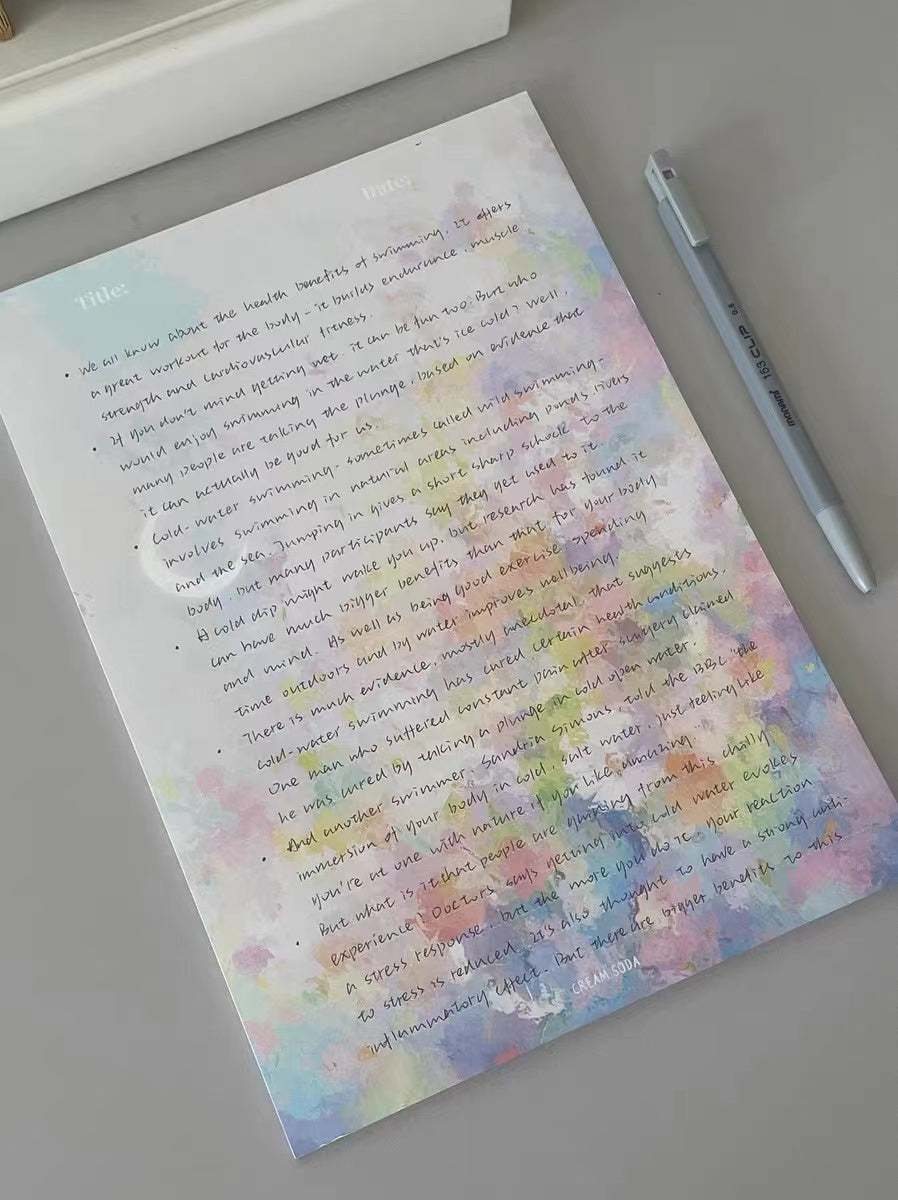 Date:
Title:
• We all know about the health benefits of swimming. It offers
a great workout for the body - it builds endurance, muscle
strength and cardiovascular fitness.
• If you don't mind getting wet, it can be fun too. But who
would enjoy swimming in the water that's ice cold? Well,
many people are taking the plunge, based on evidence that
it can actually be good for us.
• Cold-water swimming - sometimes called wild swimming -
involves swimming in natural areas including ponds rivers
and the sea. Jumping in gives a short sharp shock to the
body, but many participants say they get used to it.
• A cold dip might wake you up, but research has found it
can have much bigger benefits than that for your body
and mind. As well as being good exercise, spending
time outdoors and by water improves wellbeing.
• There is much evidence, mostly anecdotal, that suggests
cold-water swimming has cured certain health conditions.
One man who suffered constant pain after surgery claimed
he was cured by taking a plunge in cold open water.
• And another swimmer, Sandria Simons, told the BBC "the
immersion of your body in cold, salt water, just feeling like
you're at one with nature if you like, amazing."
• But what is it that people are gaining from this chilly
experience? Doctors says getting into cold water evokes
a stress response, but the more you do it, your reaction
to stress is reduced. It's also thought to have a strong anti-
inflammatory effect. But there are bigger benefits to this
CREAM SODA
monami 153 CLIP 0.5